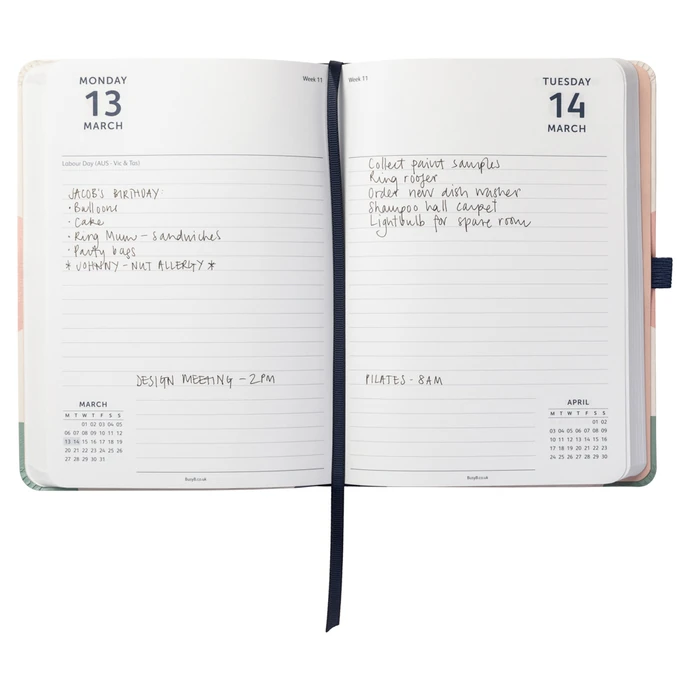 MONDAY
13
MARCH
Week 11
Labour Day (AUS - Vic & Tas)
JACOB'S BIRTHDAY
• Balloons
• Cake
• Ring Mum - Sandwiches
• Party bags
* JOHNNY - NUT ALLERGY *
DESIGN MEETING - 2PM
MARCH
M T W T F S S
01 02 03 04 05
06 07 08 09 10 11 12
13 14 15 16 17 18 19
20 21 22 23 24 25 26
27 28 29 30 31
BusyB.co.uk
Week 11
TUESDAY
14
MARCH
Collect paint samples
Ring roofer
Order new dish washer
Shampoo hall carpet
Lightbulb for spare room
PILATES - 8AM
APRIL
M T W T F S S
01 02
03 04 05 06 07 08 09
10 11 12 13 14 15 16
17 18 19 20 21 22 23
24 25 26 27 28 29 30
BusyB.co.uk